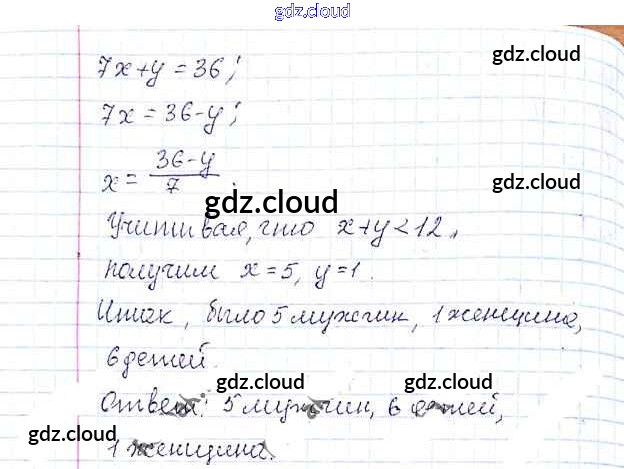 gdz.cloud
7x+y=36;
gdz.cloud
7x=36-y;
x= 36-y / 7
gdz.cloud
gdz.cloud
Учитывая, что x+y<12,
получим x=5, y=1.
Итак, было 5 мужчин, 1 женщина,
6 детей.
gdz.cloud
gdz.cloud
Ответ: 5 мужчин, 6 детей,
gdz.cloud
1 женщина.